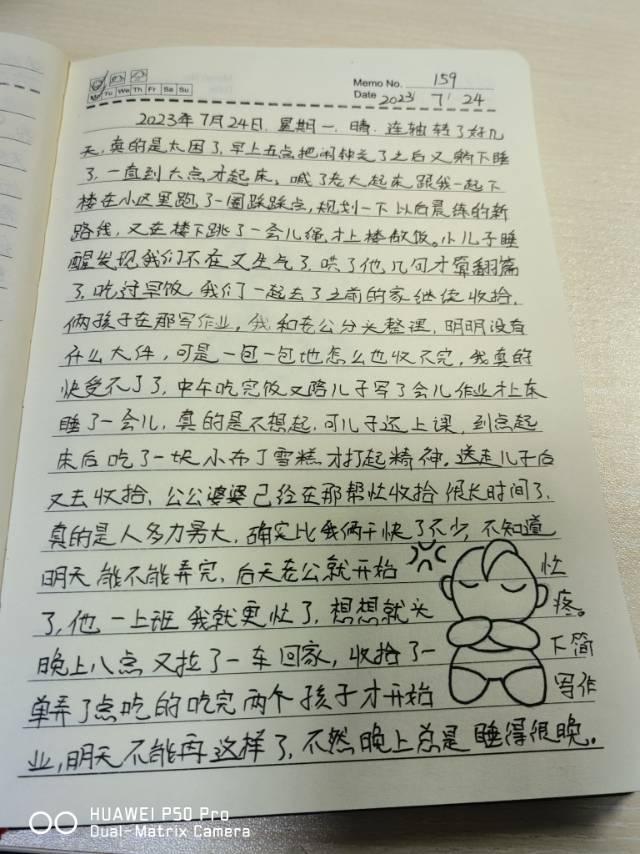 Mo Tu We Th Fr Sa Su
Memo No. 159
Date 2023/ 7/ 24
2023年7月24日,星期一,晴.连轴转了好几
天,真的是太困了,早上五点把闹钟关了之后又躺下睡
了,一直到六点才起床,喊了老大起床跟我一起下
楼在小区里跑了一圈踩踩点,规划一下以后晨练的新
路线,又在楼下跳了一会儿绳才上楼做饭。小儿子睡
醒发现我们不在又生气了,哄了他几句才算翻篇
了,吃过早饭,我们一起去了之前的家继续收拾,
俩孩子在那写作业,我和老公分头整理,明明没有
什么大件,可是一包一包地怎么也收不完,我真的
快受不了了,中午吃完饭又陪儿子写了会儿作业才上床
睡了一会儿,真的是不想起,可儿子还上课,到点起
床后吃了一块小布丁雪糕才打起精神,送走儿子后
又去收拾,公公婆婆已经在那帮忙收拾很长时间了,
真的是人多力量大,确实比我俩干快了不少,不知道
明天能不能弄完,后天老公就开始忙
了,他一上班我就更忙了,想想就头疼。
晚上八点又拉了一车回家,收拾了一下简
单弄了点吃的吃完两个孩子才开始写作
业,明天不能再这样了,不然晚上总是睡得很晚。
HUAWEI P50 Pro
Dual-Matrix Camera